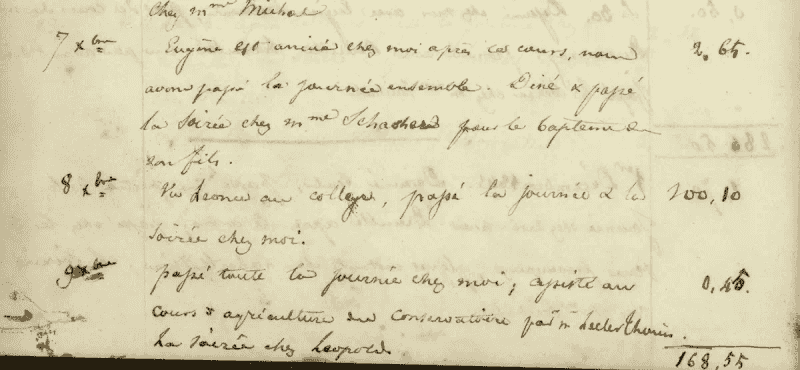 chez mme Michel
7 xbre Eugène est arrivé chez moi après le cours, nous 2,65.
avons passé la journée ensemble. Diné & passé
la soirée chez mme pour le bapteme de
son fils.
8 xbre Vu Leonce au college, passé la journée & la 100,10
soirée chez moi.
9 xbre passé toute la journée chez moi; assisté au 0,45.
cours d'agriculture au Conservatoire par mr Leclerc Thouin.
La soirée chez Leopold 168,55